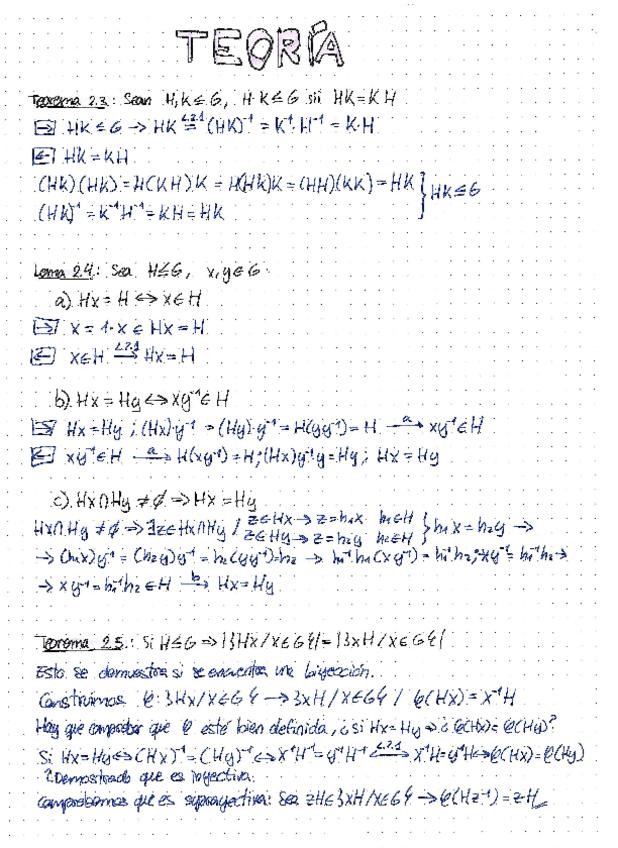 TEORÍA
Teorema 2.3.: Sean H,K≤G, H·K≤G sii HK=KH
⇒ HK≤G → HK =(L.2.1) (HK)⁻¹ = K⁻¹·H⁻¹ = K·H
⇐ HK=KH
(HK)(HK)=H(KH)K = H(HK)K=(HH)(KK)=HK } HK≤G
(HK)⁻¹=K⁻¹H⁻¹=KH=HK
Lema 2.4.: Sea H≤G, x,y∈G.
a) Hx=H ↔ x∈H
⇒ x=1·x∈Hx=H
⇐ x∈H →(L.2.1) Hx=H
b) Hx=Hy ↔ xy⁻¹∈H
⇒ Hx=Hy; (Hx)·y⁻¹=(Hy)·y⁻¹=H(yy⁻¹)=H →(a) xy⁻¹∈H
⇐ xy⁻¹∈H →(a) H(xy⁻¹)=H; (Hx)y⁻¹y=Hy; Hx=Hy
c) Hx∩Hy≠∅ ⇒ Hx=Hy
Hx∩Hy≠∅ ⇒ ∃z∈Hx∩Hy / z∈Hx → z=h₁x h₁∈H } h₁x=h₂y →
z∈Hy → z=h₂y h₂∈H
→ (h₁x)y⁻¹=(h₂y)y⁻¹=h₂(yy⁻¹)=h₂ → h₁⁻¹h₁(xy⁻¹)=h₁⁻¹h₂; xy⁻¹=h₁⁻¹h₂ →
→ xy⁻¹=h₁⁻¹h₂∈H →(b) Hx=Hy
Teorema 2.5.: Si H≤G ⇒ |{Hx/x∈G}|=|{xH/x∈G}|
Esto se demuestra si se encuentra una biyección.
Construimos φ: {Hx/x∈G} → {xH/x∈G} / φ(Hx)=x⁻¹H
Hay que comprobar que φ esté bien definida, ¿si Hx=Hy ⇒ ¿φ(Hx)=φ(Hy)?
Si Hx=Hy ↔ (Hx)⁻¹=(Hy)⁻¹ ↔ x⁻¹H⁻¹=y⁻¹H⁻¹ ↔(L.2.1) x⁻¹H=y⁻¹H ↔ φ(Hx)=φ(Hy)
Demostrado que es inyectiva.
Comprobamos que es suprayectiva: Sea zH∈{xH/x∈G} → φ(Hz⁻¹)=z·H